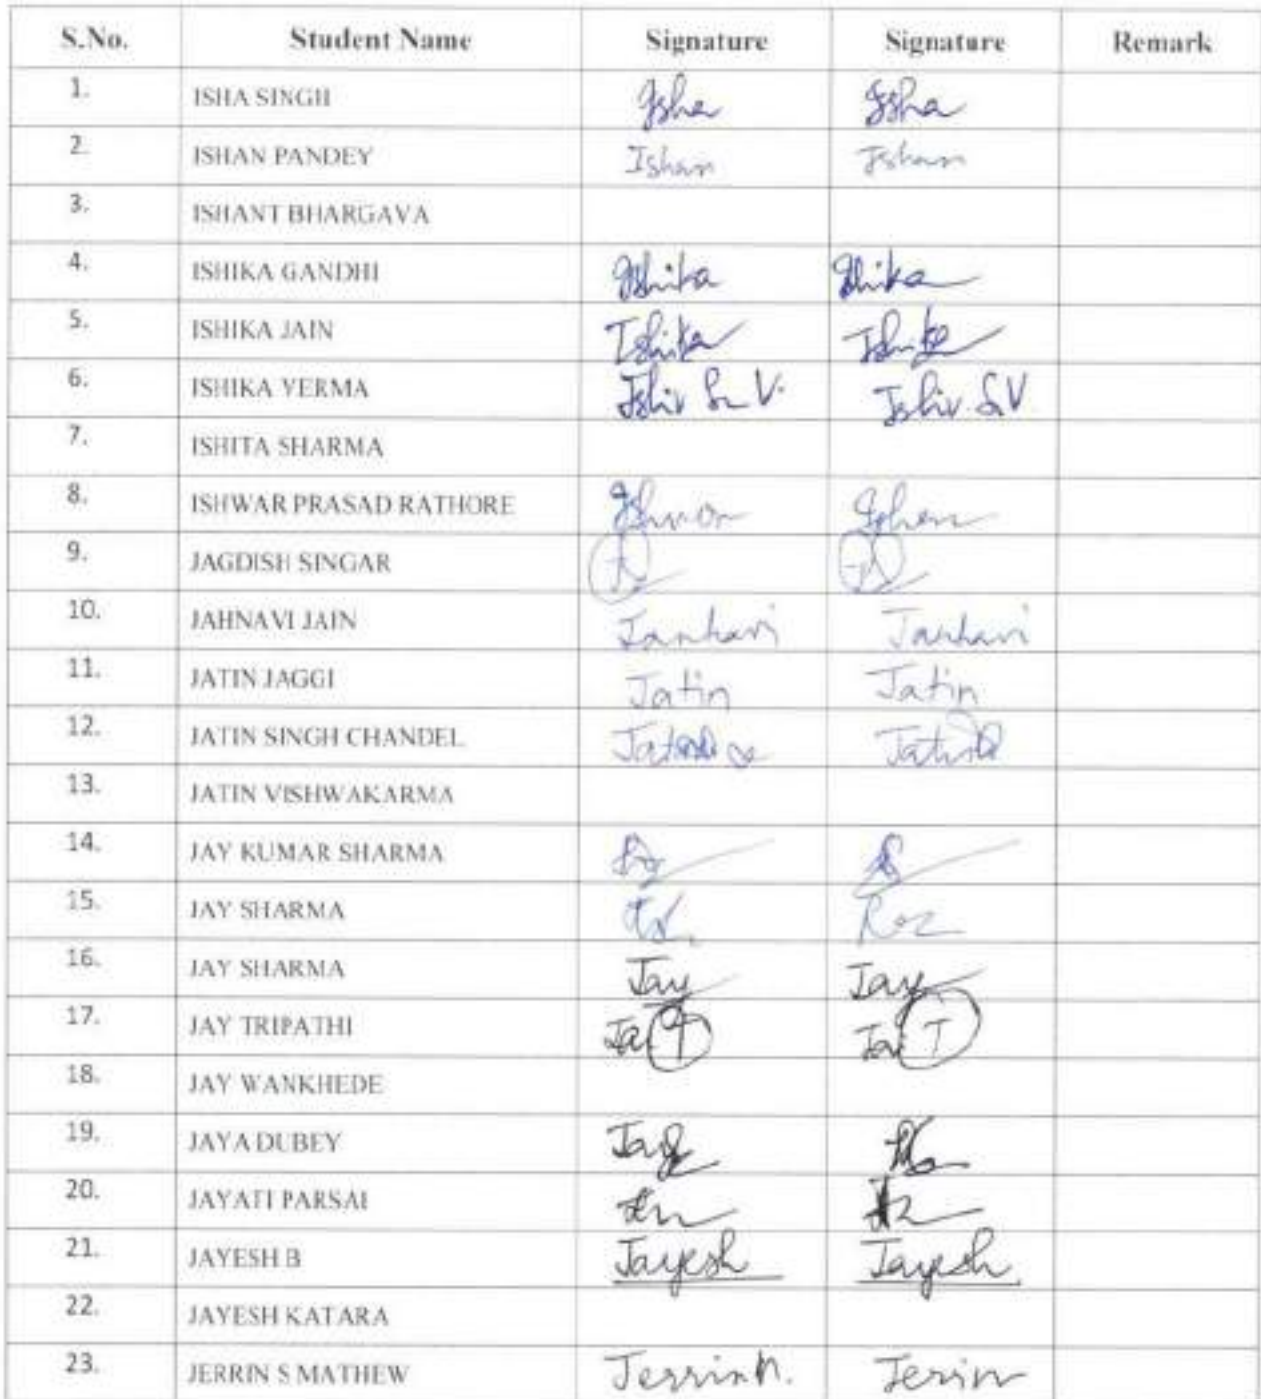 S.No. Student Name Signature Signature Remark
1. ISHA SINGH Isha Isha
2. ISHAN PANDEY Ishan Ishan
3. ISHANT BHARGAVA
4. ISHIKA GANDHI Ishika Ishika
5. ISHIKA JAIN Ishika Ishika
6. ISHIKA VERMA
7. ISHITA SHARMA
8. ISHWAR PRASAD RATHORE
9. JAGDISH SINGAR
10. JAHNAVI JAIN Janhavi Janhavi
11. JATIN JAGGI Jatin Jatin
12. JATIN SINGH CHANDEL
13. JATIN VISHWAKARMA
14. JAY KUMAR SHARMA
15. JAY SHARMA
16. JAY SHARMA Jay Jay
17. JAY TRIPATHI Jai T Jai T
18. JAY WANKHEDE
19. JAYA DUBEY
20. JAYATI PARSAI
21. JAYESH B Jayesh Jayesh
22. JAYESH KATARA
23. JERRIN S MATHEW Jerrin M. Jerrin